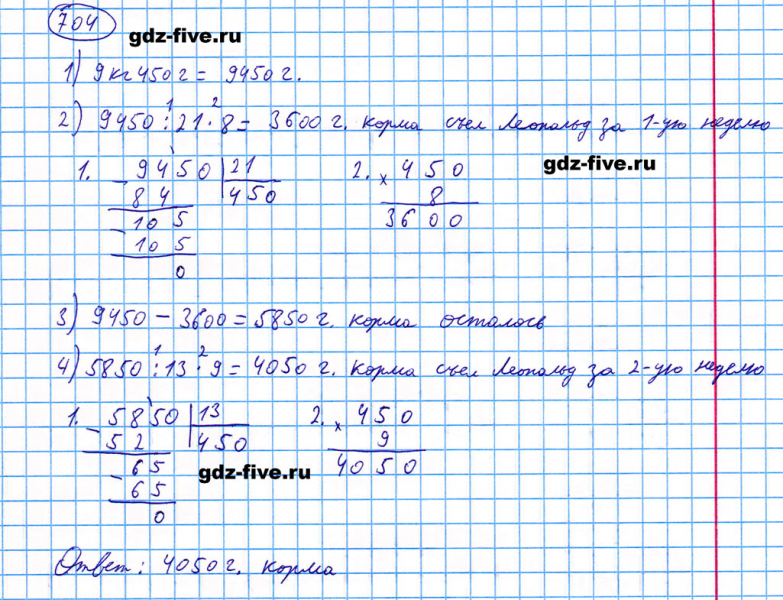 704
gdz-five.ru
1) 9 кг 450 г = 9450 г.
1 2
2) 9450 : 21 · 8 = 3600 г. корма съел Леопольд за 1-ую неделю
gdz-five.ru
1. 9450 | 21
- 84 | 450
105
- 105
0
2. × 450
8
3600
3) 9450 - 3600 = 5850 г. корма осталось
1 2
4) 5850 : 13 · 9 = 4050 г. корма съел Леопольд за 2-ую неделю
1. 5850 | 13
- 52 | 450
65
- 65
0
2. × 450
9
4050
gdz-five.ru
Ответ: 4050 г. корма